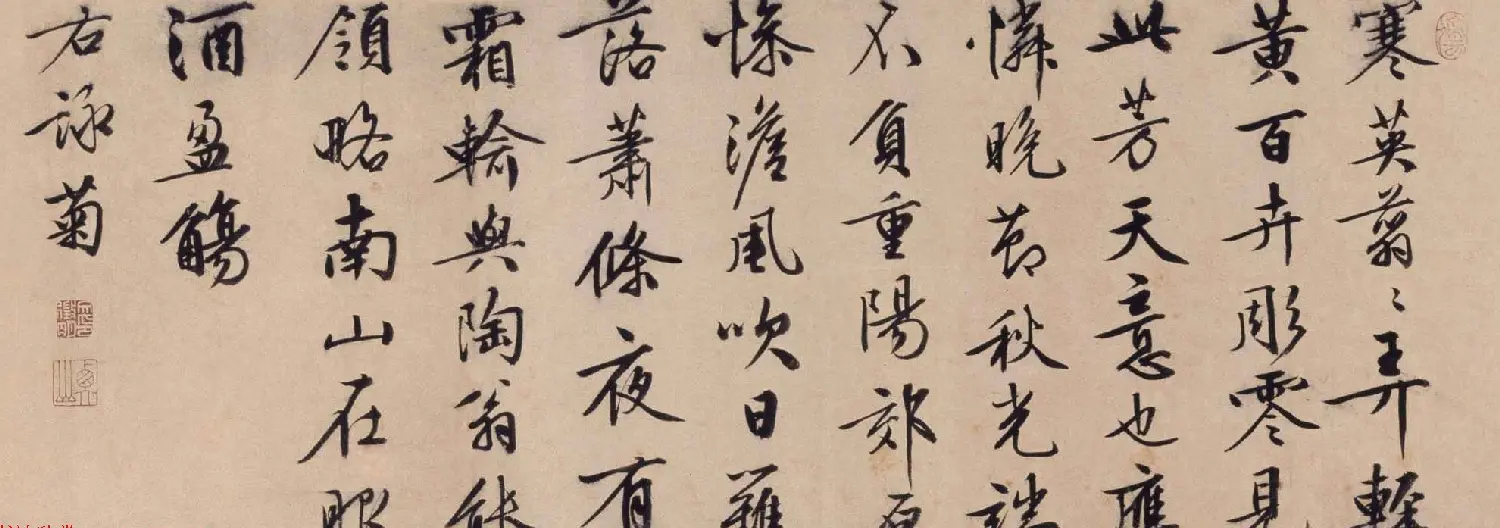 寒英蓊〻弄輕
黃百卉彫零見
此芳天意也應
憐晚節秋光端
不負重陽郊原
慘澹風吹日籬
落蕭條夜有
霜輸與陶翁能
領略南山在眼
酒盈觴
右詠菊